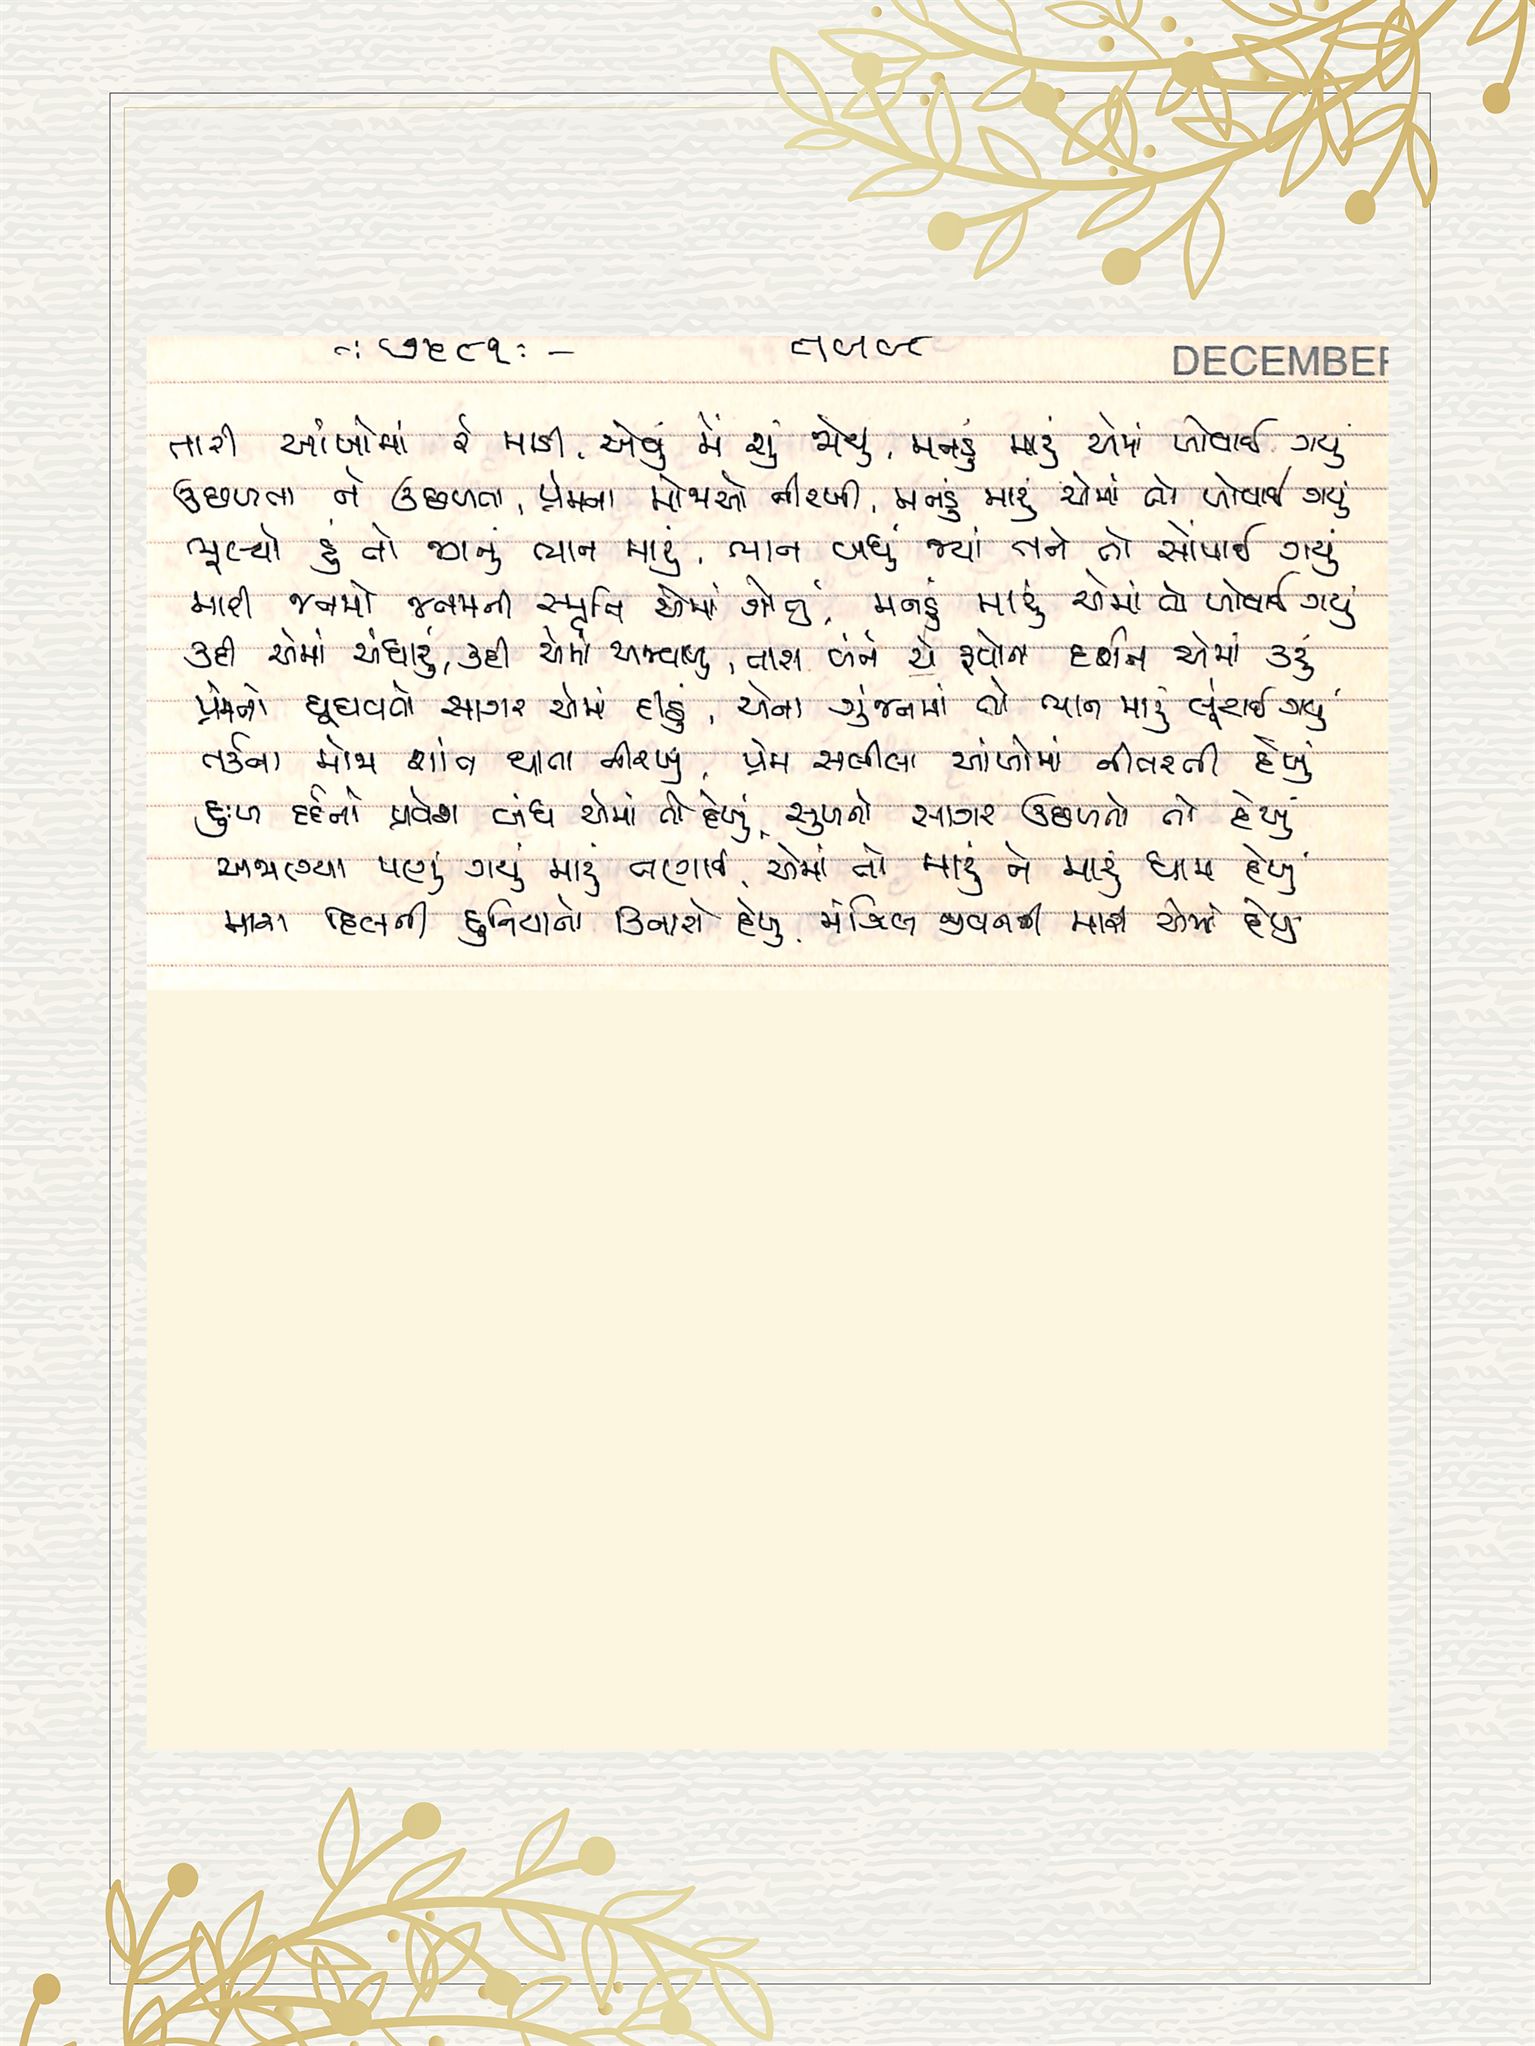 તારી આંખોમાં રે માડી, એવું મેં શું જોયું, મનડું મારું એમાં ખોવાઈ ગયું
ઉછળતા ને ઉછળતા, પ્રેમના મોજાઓ નીરખી, મનડું મારું એમાં તો ખોવાઈ ગયું
ભૂલ્યો હું તો જગનું ભાન મારું, ભાન બધું જ્યાં તને તો સોંપાઈ ગયું
મારી જનમો જનમની સ્મૃતિ એમાં જોઉં, મનડું મારું એમાં તો ખોવાઈ ગયું
કદી એમાં અંધારું, કદી એમાં અજવાળું, તારા બંને એ રૂપોના દર્શન એમાં કરું
પ્રેમનો ઘૂઘવતો સાગર એમાં દીઠું, એના ગુંજનમાં તો ભાન મારું લૂંટાઈ ગયું
તર્કના મોજા શાંત થાતા નીરખું, પ્રેમ સલીલા આંખોમાં નીતરતી દેખું
દુઃખ દર્દનો પ્રવેશ બંધ એમાં તો દેખું, સુખનો સાગર ઉછળતો તો દેખું
અજાણ્યા પણું ગયું મારું તણાઈ, એમાં તો મારું ને મારું ધામ દેખું
મારા દિલની દુનિયાનો કિનારો દેખું, મંઝિલ જીવનની મારી એમાં દેખું
DECEMBER